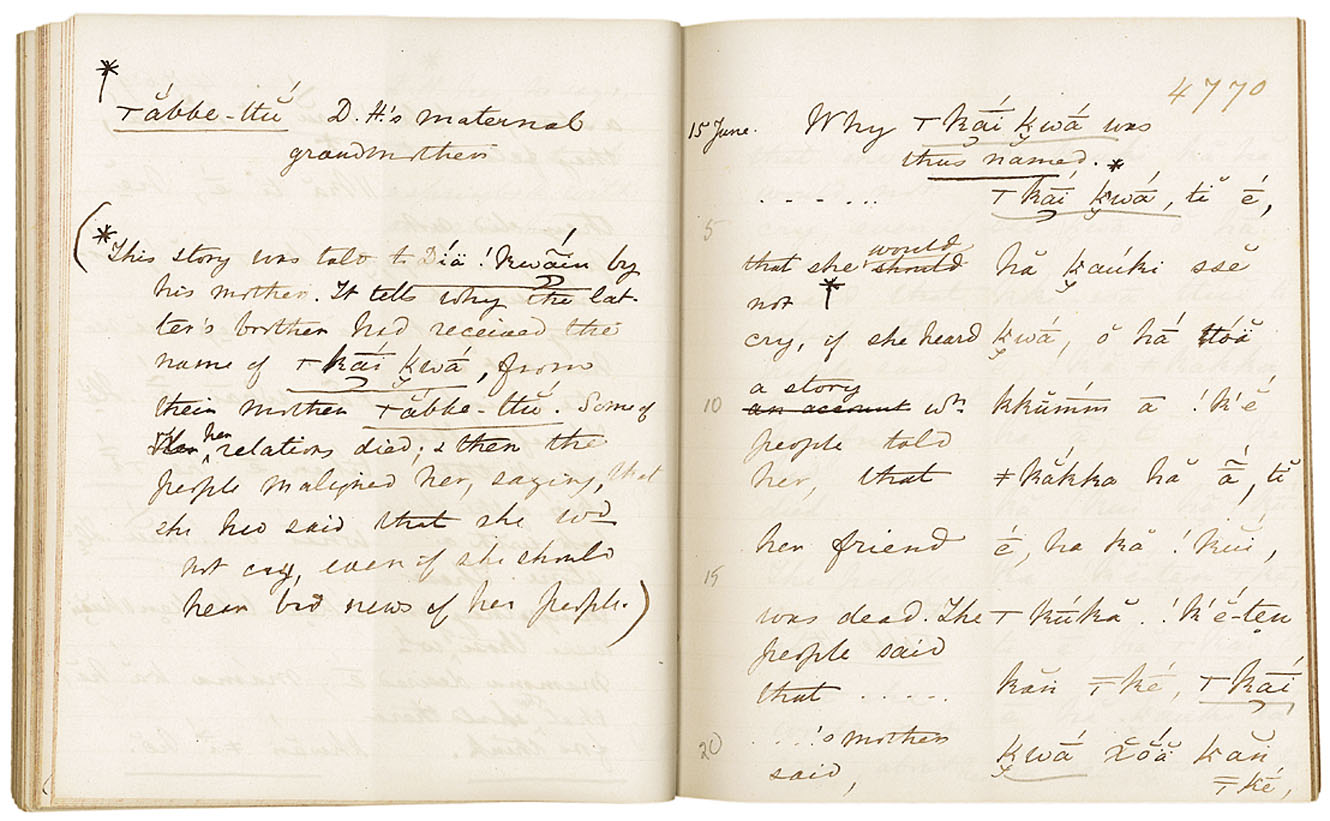 *
⊤ắbbe-ttŭ́ D. H.'s maternal
grandmother
(*This story was told to Díä !kwãín by
his mother. It tells why the lat-
ter's brother had received the
name of ⊤kā́ï kwā́, from
their mother ⊤ắbbe-ttŭ́. Some of
her relations died; & then the
people maligned her, saying, that
she had said that she wd
not cry, even if she should
hear bad news of her people.)
4770
15 June. Why ⊤kā́ï kwā́ was
thus named. *
. . . . . . ⊤kā́ï kwā́, tĭ é̄,
5
that she would should hă kaúki ssĕ
not *
cry, if she heard kwā́, ŏ hā́ ttóä
a story
10 an account wh. kkŭ́mm̄ ā !k'é
people told
her, that ǂkắkka hă ā̃́, tĭ
her friend é̄, ha kă !kŭí,
15
was dead. The ⊤kúkă. !k'é-tẹn
people said
that . . . . . kăn ⊤ké, ⊤kā́ï
. . . .'s mother kwā́ xŏ́ä kăn
20 said, ⊤ké,